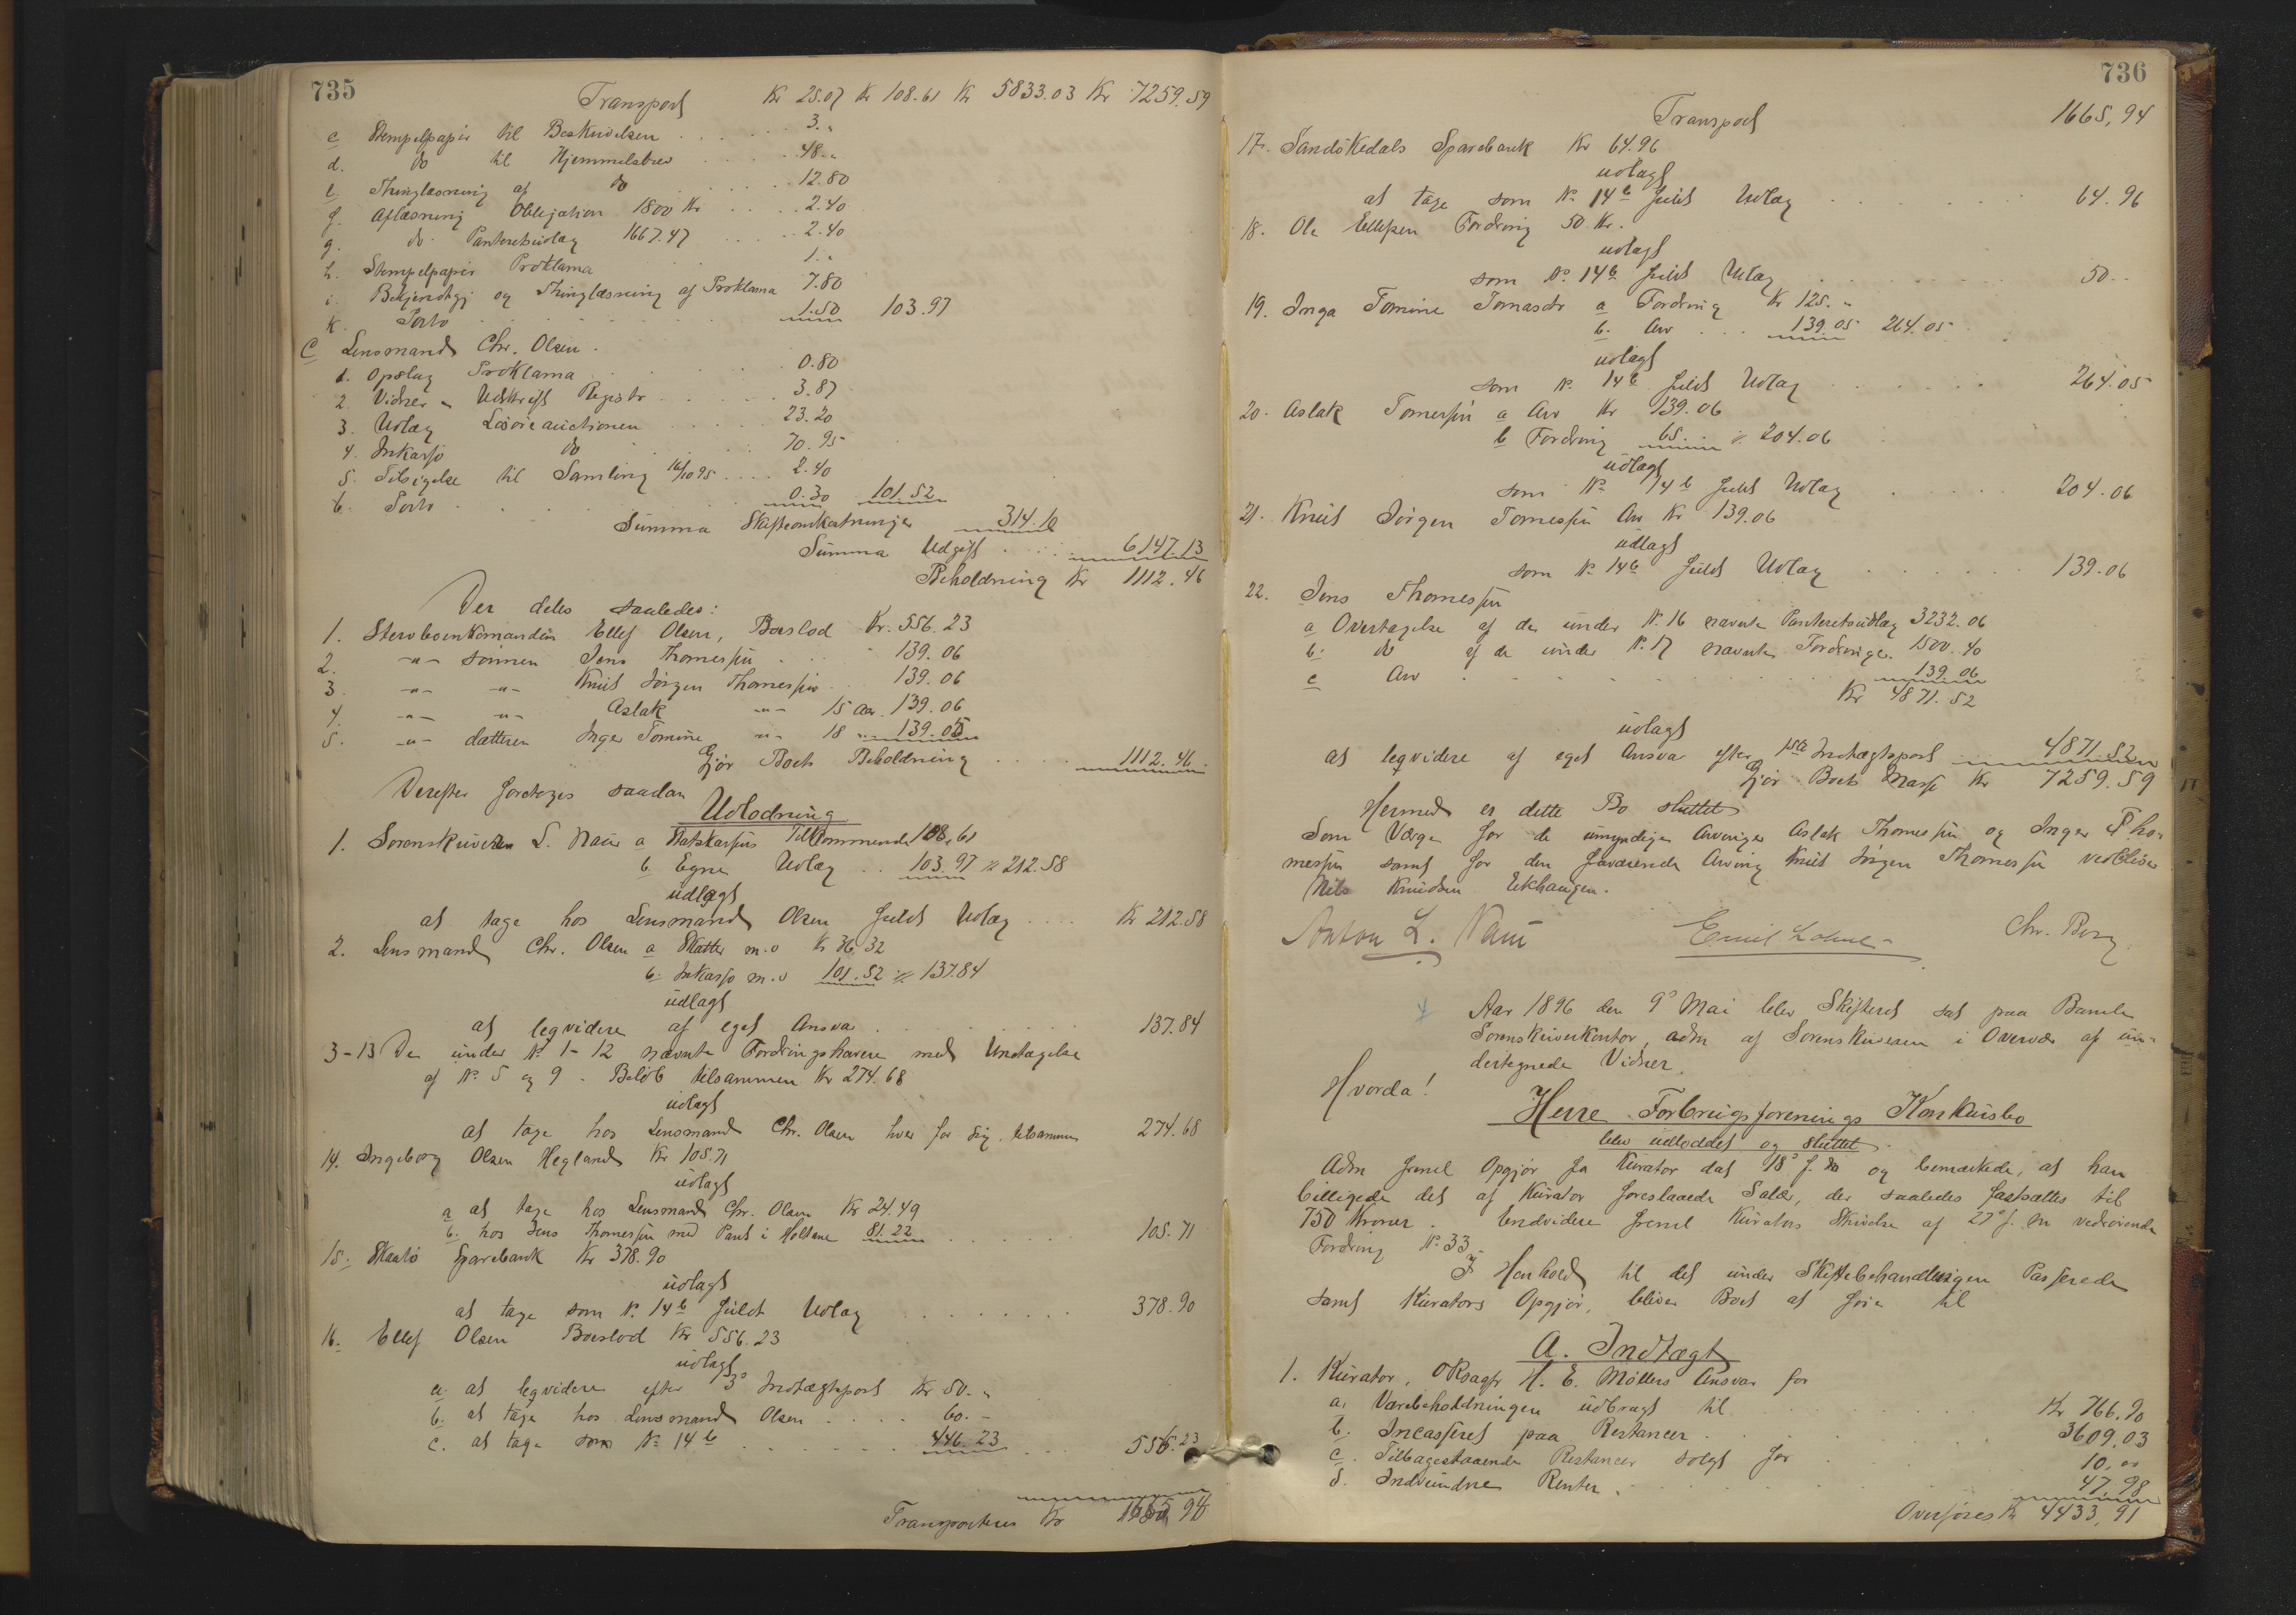 735
Transport Kr 25.07 Kr 108.61 Kr 5833.03 Kr 7259.59
c Stempelpapir til Beskrivelsen . . . . 3.„
d. do til Hjemmelsbrev . . . . 48.„
e. Thinglæsning af do . . . . 12.80
f. Aflæsning Obligation 1800 Kr . . . . 2.40
g. do Panteretsudlæg 1667.47 . . . . 2.40
h. Stempelpapir Proklama 1.„
i. Bekjendtgj og Thinglæsning af Proklama 7.80
k. Porto . . . . 1.50 103.97
C Lensmand Chr. Olsen.
1. Opslag Proklama . . . . 0.80
2. Vidner - Udskrift Registr . . . . 3.87
3. Udlæg Løsøreauctionen . . . . 23.20
4. Inkasso do . . . . 70.95
5. Tilsigelse til Samling 16/10 95 . . . . 2.40
6. Porto . . . . 0.30 101.52
Summa Skifteomkostninger 314.10
Summa Udgift . . . . 6147.13
Beholdning Kr 1112.46
Der deles saaledes:
1. Stervboenkemanden Ellef Olsen, Boeslod Kr. 556.23
2. -"- sønnen Jens Thomessen . . . 139.06
3. -"- -"- Knut Jørgen Thomessen . . 139.06
4. -"- -"- Aslak -"- 15 Aar. 139.06
5. -"- datteren Inger Tomine -"- 18 -"- 139.05
Gjør Boets Beholdning . . . . 1112.46.
Derefter foretages saadan
Udlodning
1. Sorenskriveren L. Naur a Statskassens Tilkommende 108,61
b. Egne Udlæg . . 103.97 ∕. 212.58
udlagt
at tage hos Lensmand Olsen fuldt Udlæg . . . . Kr 212.58
2. Lensmand Chr. Olsen a Skatter m.v Kr 36,32
b. Inkasso m.v 101.52 ∕. 137.84
udlagt
at leqvidere af eget Ansvar . . . . 137.84
3-13 De under No 1-12 nævnte Fordringshavere med Undtagelse
af No 5 og 9. Beløb tilsammen Kr 274.68
udlagt
at tage hos Lensmand Chr. Olsen hver for sig, tilsammen 274.68
14. Ingeborg Olsen Hegland Kr 105.71
udlagt
a at tage hos Lensmand Chr. Olsen Kr 24.49
b. hos Jens Thomessen med Pant i Holtane 81.22 . . . . 105.71
15. Skaatø Sparebank Kr 378.90
udlagt
at tage som No 14 b fuldt Udlæg . . . . 378.90
16. Ellef Olsen Boeslod Kr 556.23
udlagt
a. at leqvidere efter 3o Indtægtspost Kr 50.„
b. at tage hos Lensmand Olsen . . . . 60.-
c. at tage som No 14 b . . . . 446.23 . . . 556.23
Transporteres Kr 1665,94
736
Transport 1665,94
17. Sandøkedals Sparebank Kr 64.96
udlagt
at tage som No 14 b fuldt Udlæg . . . . 64.96
18. Ole Ellefsen Fordring 50 Kr.
udlagt
som No 14 b fuldt Udlæg . . . . 50.-
19. Inga Tomine Tomasdtr a Fordring Kr 125.„
b. Arv . . . 139.05 264.05
udlagt
som No 14 b fuldt Udlæg . . . . 264.05
20. Aslak Tomessen a Arv Kr 139.06
b Fordring 65.- ∕. 204.06
udlagt
som No 14 b fuldt Udlæg . . . . 204.06
21. Knut Jørgen Tomessen Arv Kr 139.06
udlagt
som No 14 b fuldt Udlæg . . . . 139.06
22. Jens Thomessen
a Overtagelse af de under No 16 nævnte Panteretsudlæg 3232.06
b. do af de under No 17 nævnte Fordringer. 1500.40
c Arv . . . . 139.06
Kr 4871.52
udlagt
at leqvidere af eget Ansvar efter 1ste Indtægtspost . . 4871.52
Gjør Boets Masse Kr 7259.59
Hermed er dette Bo sluttet
Som Værge for de umyndige Arvinger Aslak Thomessen og Inger Tho-
messen samt for den fraværende Arving Knut Jørgen Thomessen vedbliver
Nils Knudsen Ekhaugen.
Anton L. Naur Emil Chr. Berg
Aar 1896 den 9o Mai blev Skifteret sat paa Bamle
Sorenskriverkontor, adm af Sorenskriveren i Overvær af un-
dertegnede Vidner.
Hvorda!
Herre Forbrugsforenings Konkursbo
blev udloddet og sluttet.
Adm freml Opgjør fra Kurator dat 18o f. M og bemærkede, at han
billigede det af Kurator foreslaaede Salær, der saaledes fastsættes til
750 Kroner. Endvidere freml Kurators Skrivelse af 27o f. M vedrørende
Fordring No 33.
I Henhold til det under Skiftebehandlingen Passerede
samt Kurators Opgjør, bliver Boet at føre til
A. Indtægt
1. Kurator, OKsagfr H. E. Møllers Ansvar for
a. Varebeholdningen udbragt til . . . . Kr 766,90
b. Incasseret paa Restancer . . . . 3609,03
c. Tilbagestaaende Restancer solgt for . . . . 10,00
d. Indvundne Renter . . . . 47.98
Overføres Kr 4433,91